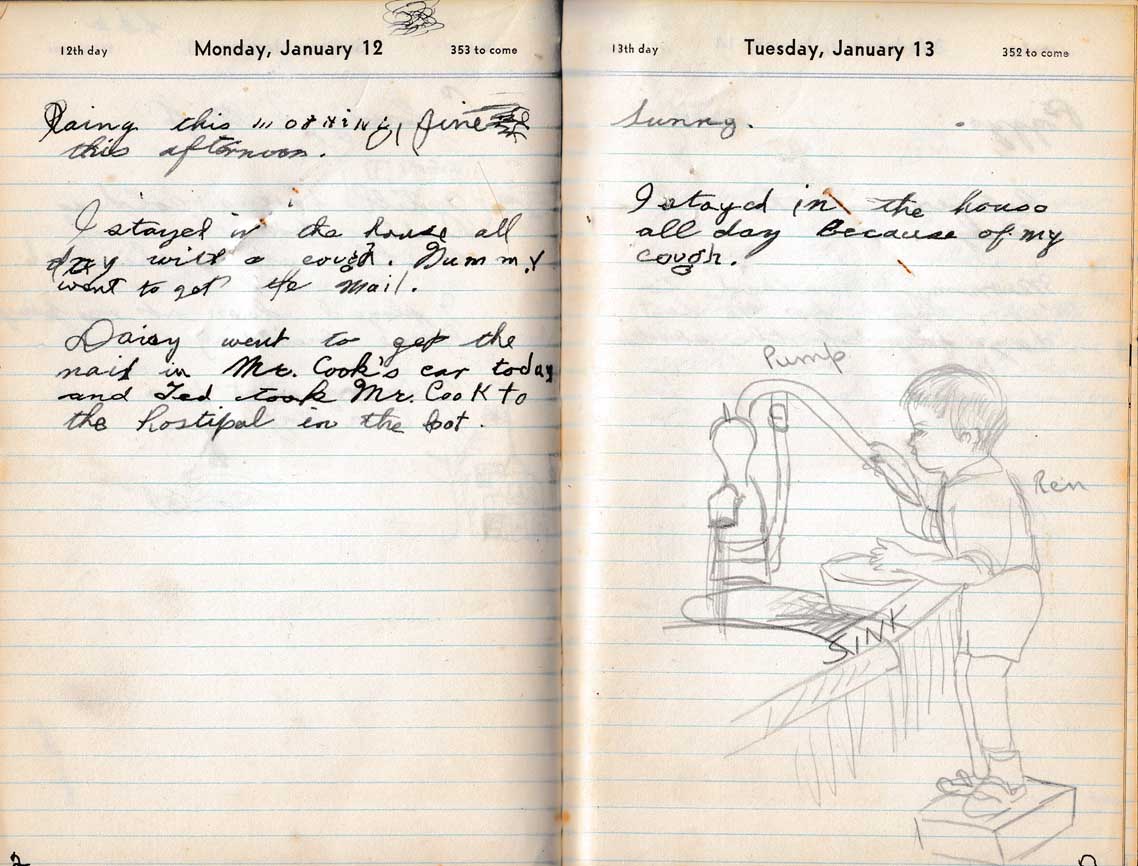 12th day Monday, January 12 353 to come
Raing this morning, fine
this afternoon.
I stayed in the house all
day with a cough. Gummy
went to get the mail.
Daisy went to get the
mail in Mr. Cook's car today
and Ted took Mr. Cook to
the hostipal in the bot.
2
13th day Tuesday, January 13 352 to come
Sunny.
I stayed in the house
all day because of my
cough.
Pump
Ren
SINK